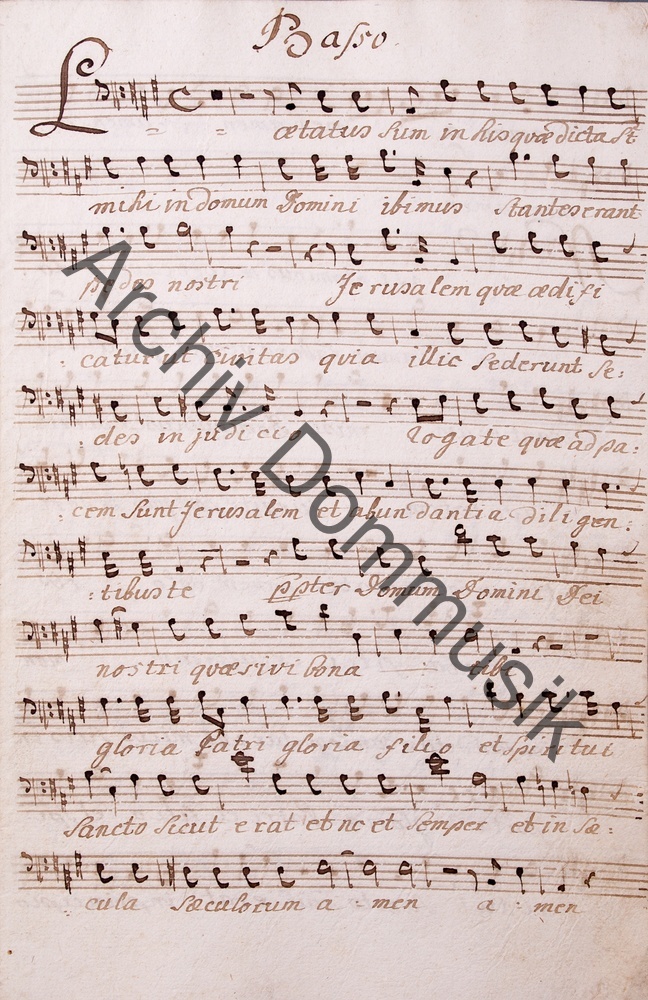 Basso.
Lætatus sum in his quæ dicta st
mihi in domum Domini ibimus stantes erant
pedes nostri Jerusalem quæ ædifi
catur ut Civitas quia illic sederunt se:
des in judicio rogate quæ ad pa:
cem sunt Jerusalem et abundantia diligen:
:tibus te ppter Domum Domini Dei
nostri quæsivi bona tibi
gloria Patri gloria filio et spiritui
Sancto sicut erat et nc et semper et in sæ:
cula sæculorum a men a : men
Archiv Dommusik